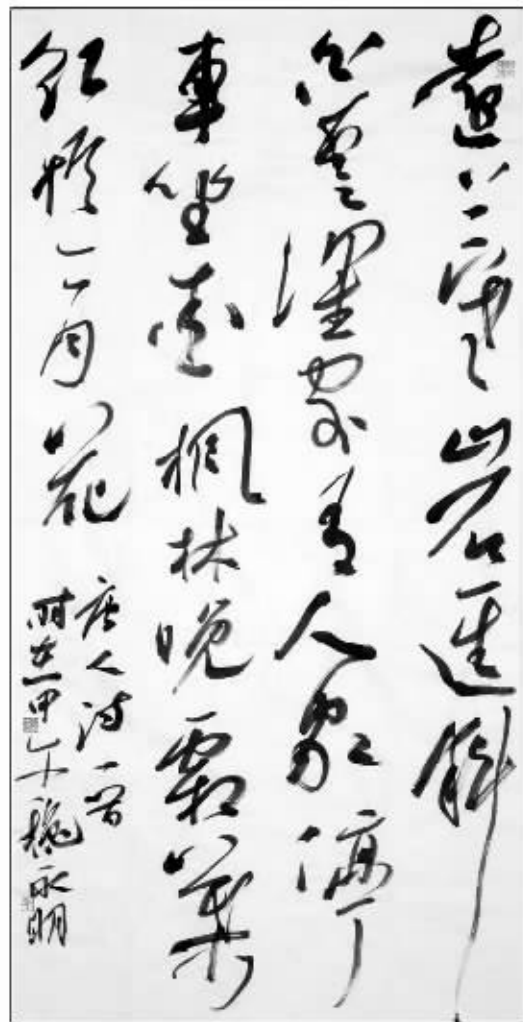 遠上寒山石徑斜
白雲深處有人家停
車坐愛楓林晚霜葉
紅於二月花
唐人詩一首
時在甲午穐永明